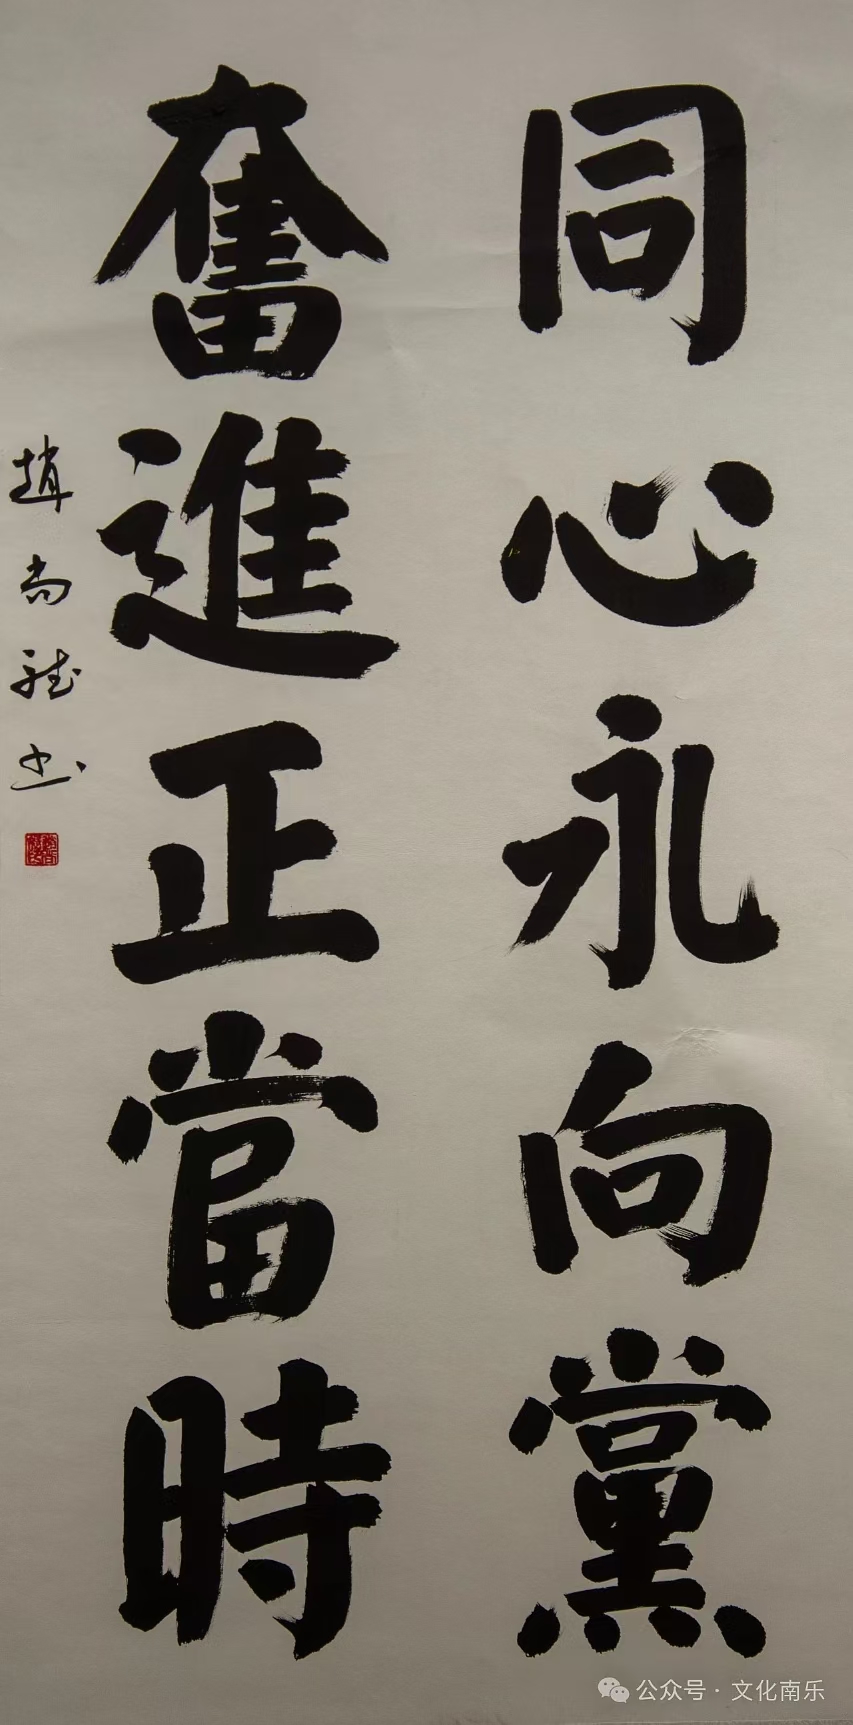 同心永向黨
奮進正當時
趙尚斌书
公众号·文化南乐